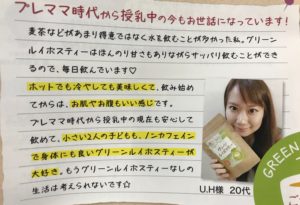 プレママ時代から授乳中の今もお世話になっています!
麦茶などがあまり得意ではなく水を飲むことが多かった私。グリーン
ルイボスティーはほんのり甘さもありながらサッパリ飲むことができ
るので、毎日飲んでいます♡
ホットでも冷やしても美味しくて、飲み始め
てからは、お肌やお腹もいい感じです。
プレママ時代から授乳中の現在も安心して
飲めて、小さい2人の子どもも、ノンカフェイン
で身体にも良いグリーンルイボスティーが
大好き。もうグリーンルイボスティーなしの
生活は考えられないです☆
U.H様 20代
GREEN